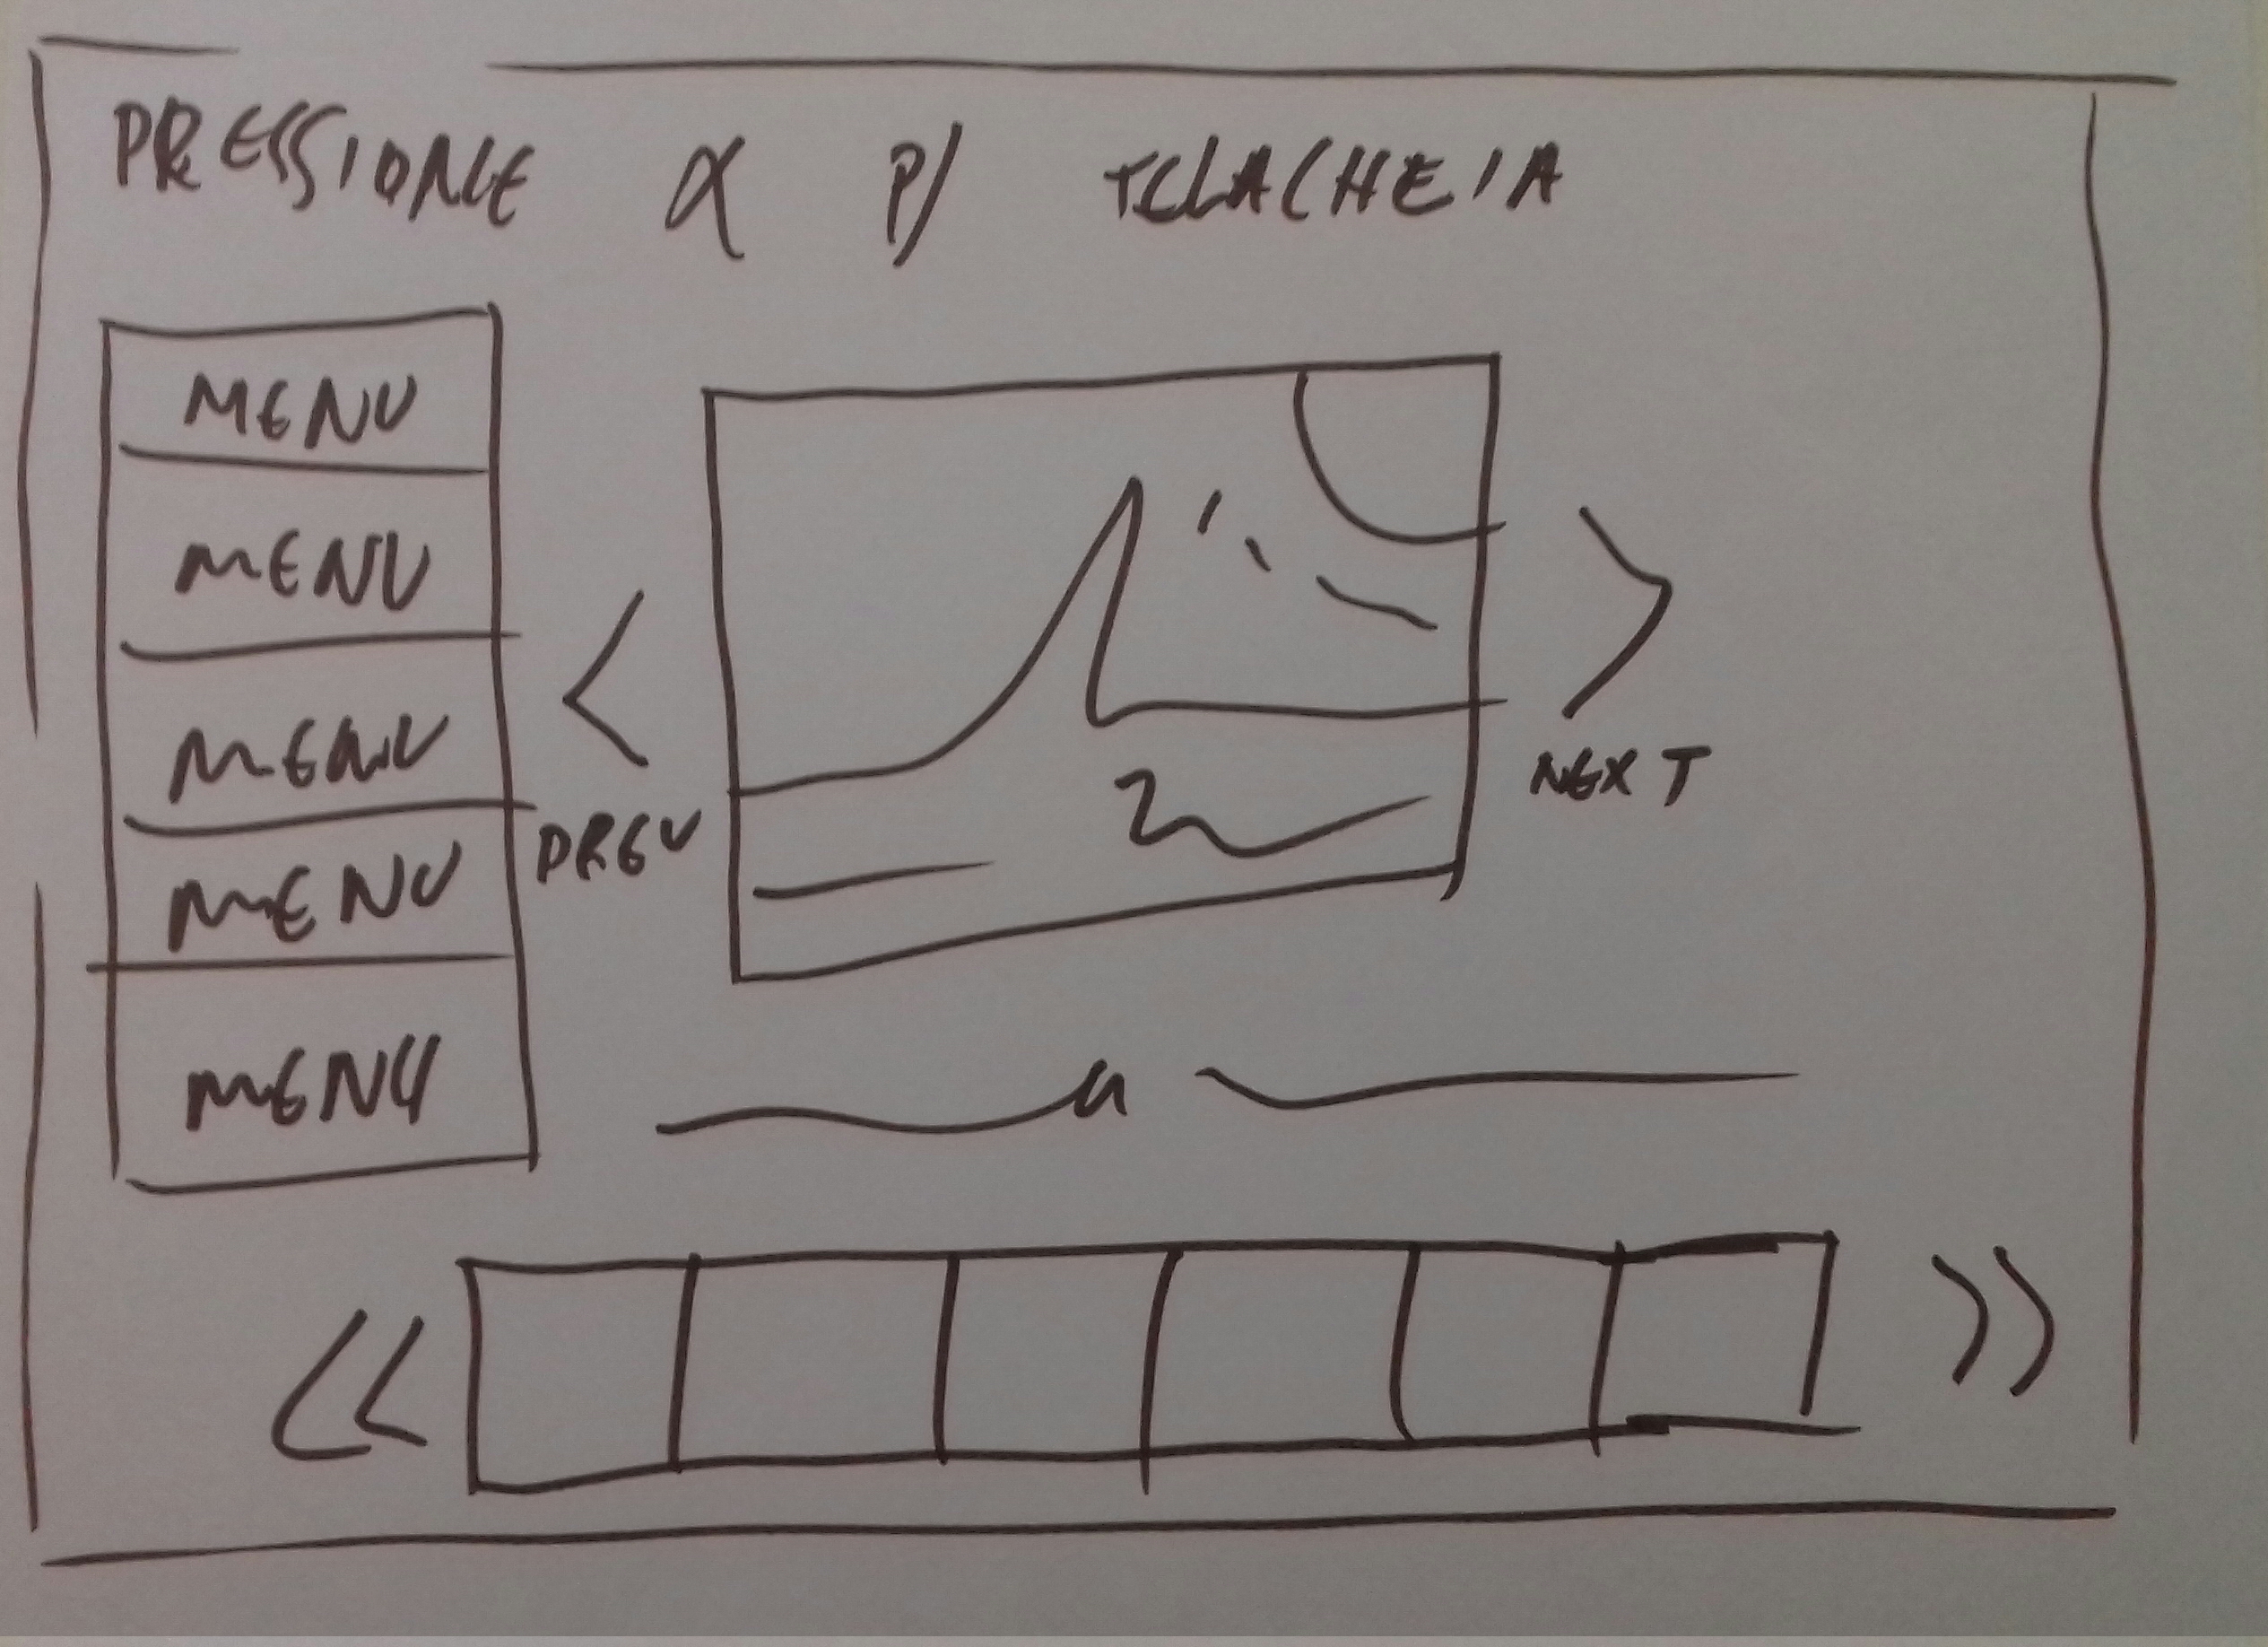 PRESSIONE α P/ TELA CHEIA
MENU
MENU
MENU
MENU
MENU
<
PREV
>
NEXT
<<
>>